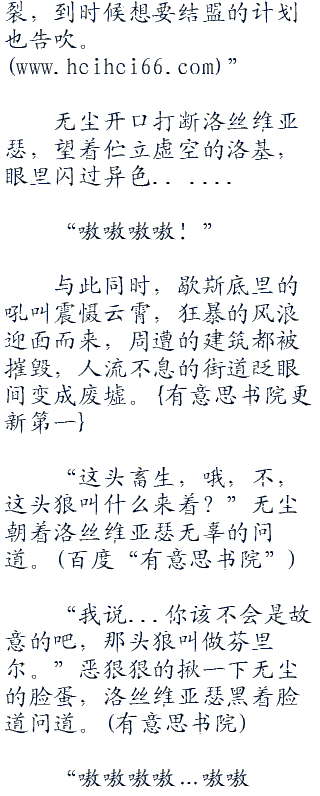 裂，到时候想要结盟的计划
也告吹。
(www.hcihci66.com)”
无尘开口打断洛丝维亚
瑟，望着伫立虚空的洛基，
眼里闪过异色.. ....
“嗷嗷嗷嗷！”
与此同时，歇斯底里的
吼叫震慑云霄，狂暴的风浪
迎面而来，周遭的建筑都被
摧毁，人流不息的街道眨眼
间变成废墟。{有意思书院更
新第一}
“这头畜生，哦，不，
这头狼叫什么来着？”无尘
朝着洛丝维亚瑟无辜的问
道。(百度“有意思书院”)
“我说...你该不会是故
意的吧，那头狼叫做芬里
尔。”恶狠狠的揪一下无尘
的脸蛋，洛丝维亚瑟黑着脸
道问道。(有意思书院)
“嗷嗷嗷嗷...嗷嗷